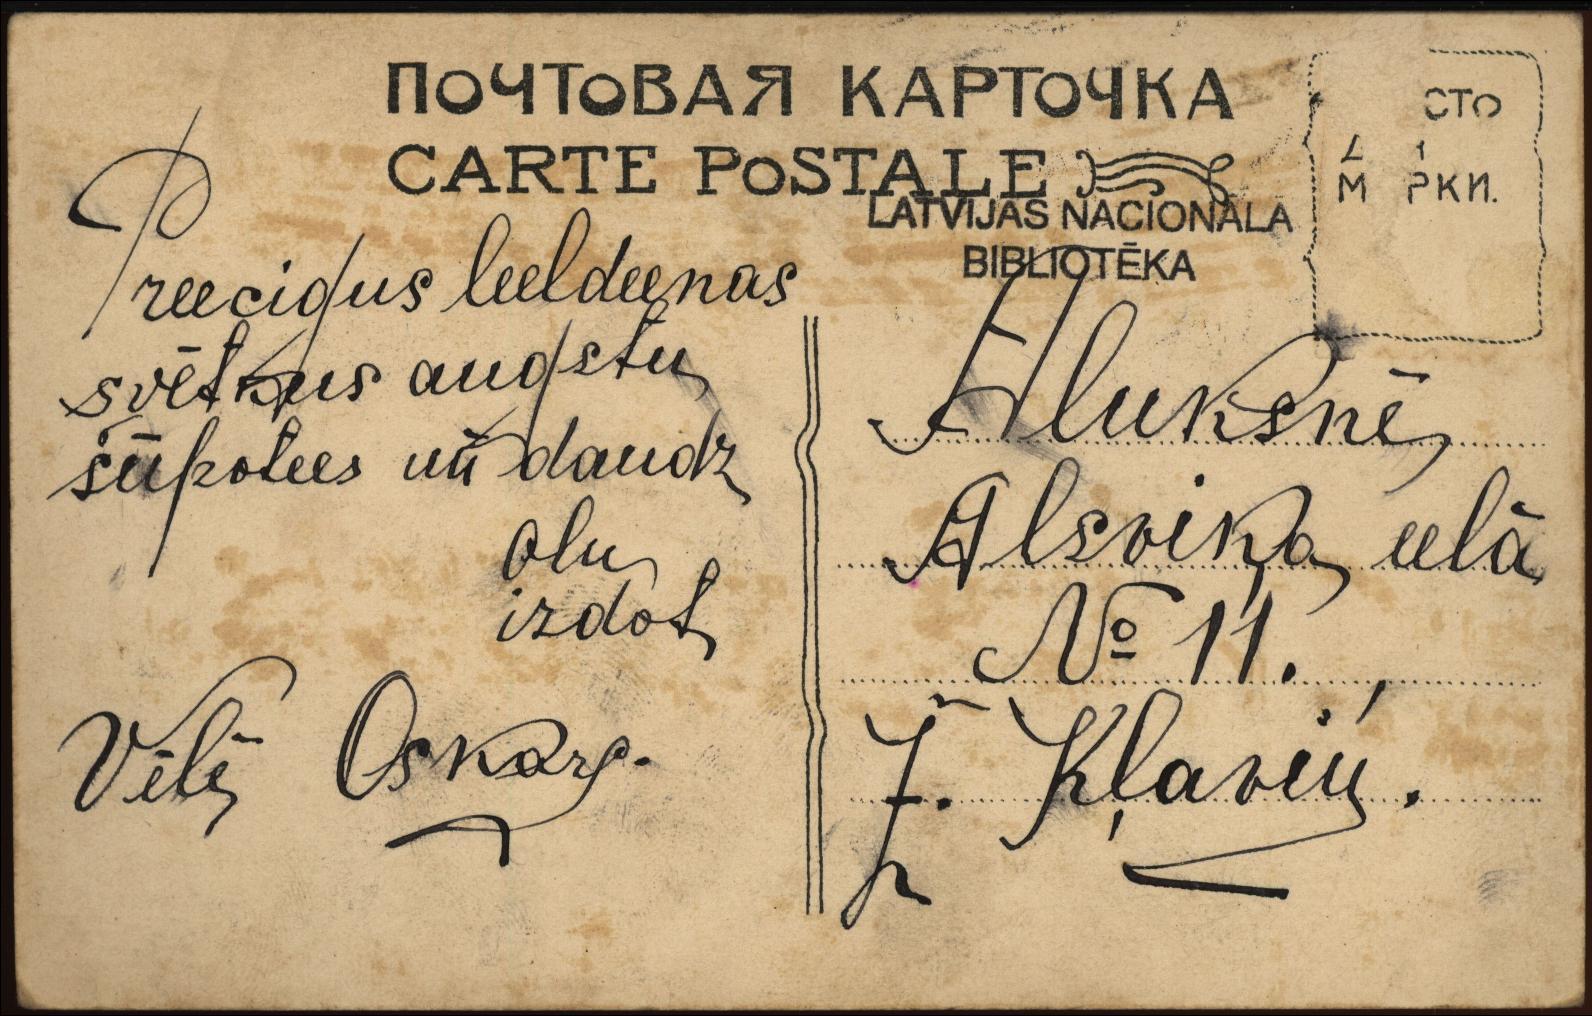 ПОЧТОВАЯ КАРТОЧКА
CARTE POSTALE
СТО
М РКИ.
LATVIJAS NACIONĀLA
BIBLIOTĒKA
Preecigus leeldeenas
svētkus augstu
šūpotees un daudz
olu
izdot
Vēlē Oskars.
Aluksnē
Alsviķa ielā
№ 11.
J. Kļaviņ.